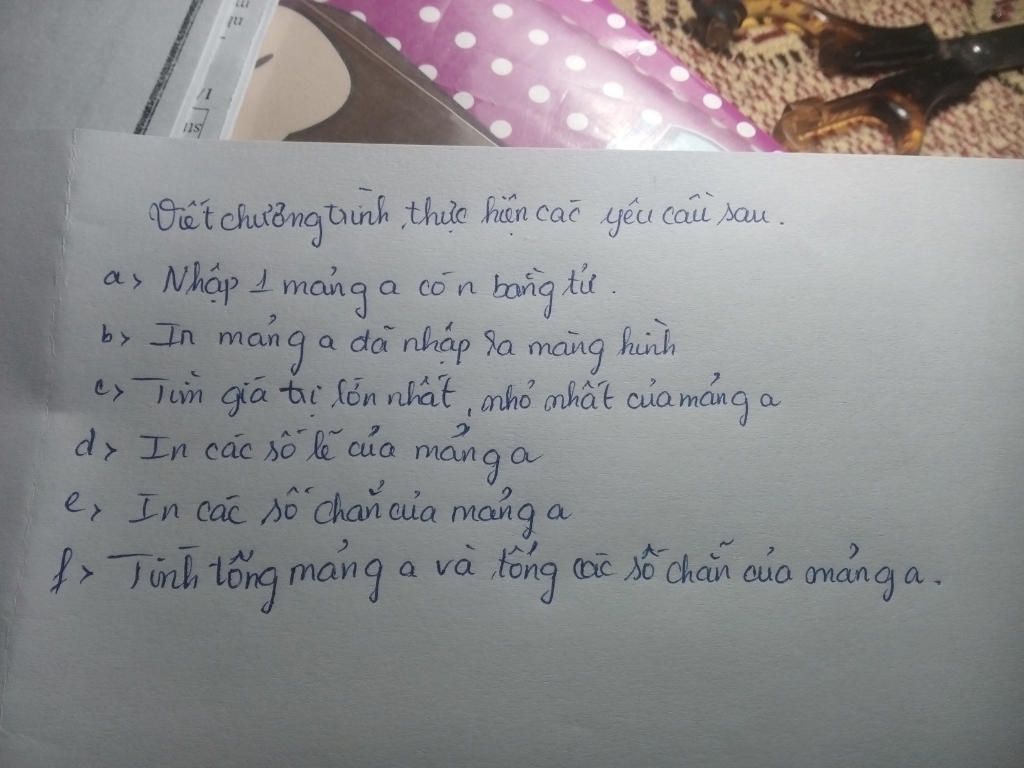 Viết chương trình thực hiện các yêu cầu sau.
a> Nhập 1 mảng a có n bằng tử.
b> In mảng a đã nhập ra màng hình
c> Tìm giá trị lớn nhất, nhỏ nhất của mảng a
d> In các số lẽ của mảng a
e> In các số chẵn của mảng a
f> Tính tổng mảng a và tổng các số chẵn của mảng a.